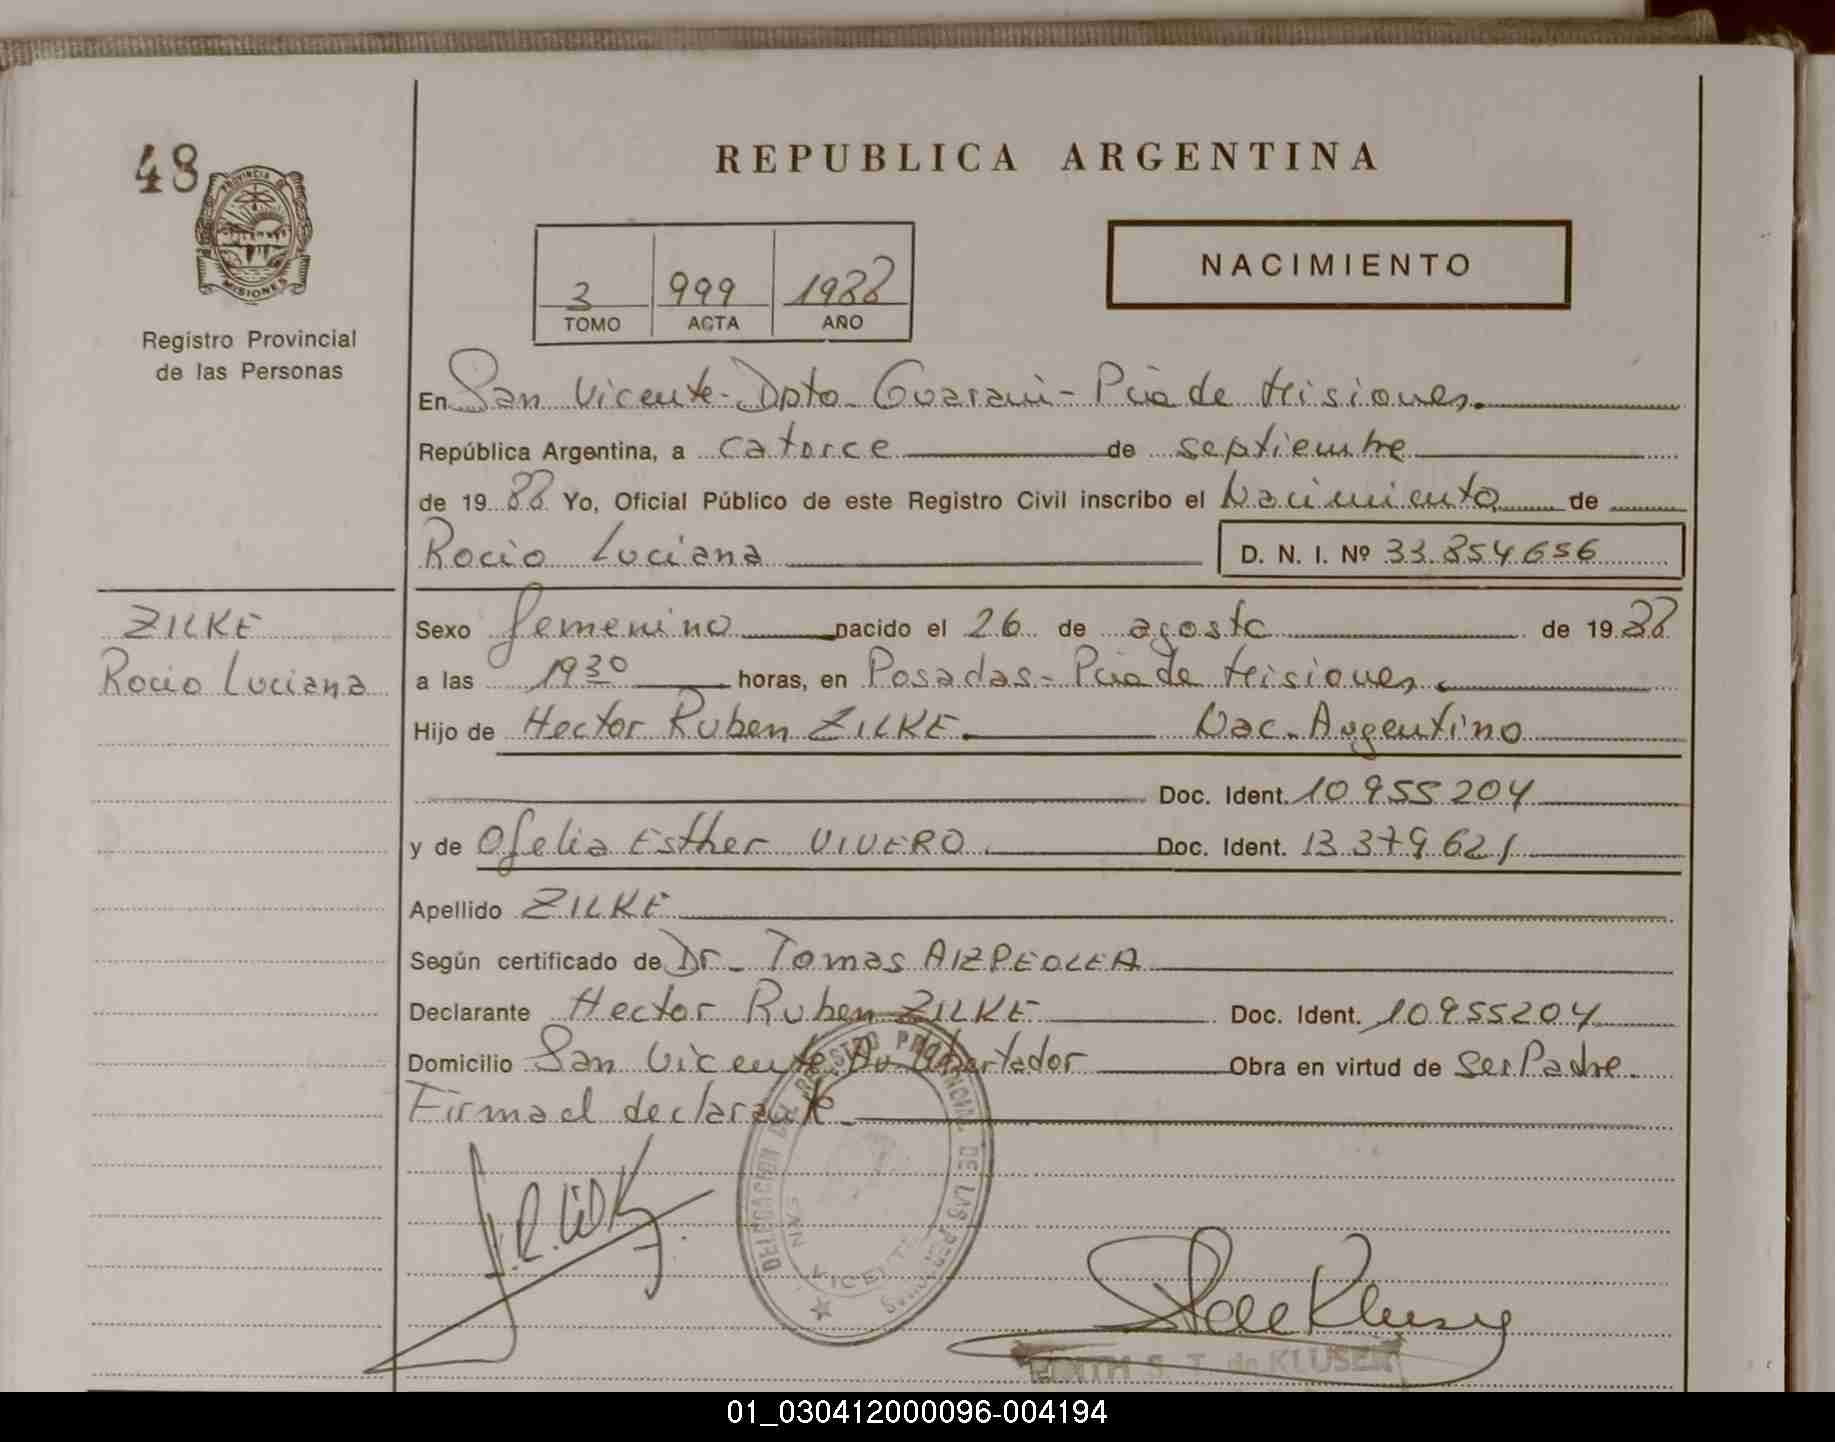 48
PROVINCIA DE
MISIONES
Registro Provincial
de las Personas
REPUBLICA ARGENTINA
3 999 1988
TOMO ACTA AÑO
NACIMIENTO
En San Vicente - Dpto Guarani - Pcia de Misiones.
República Argentina, a catorce de septiembre
de 1988 Yo, Oficial Público de este Registro Civil inscribo el Nacimiento de
Rocio Luciana D. N. I. Nº 33.854.656
ZILKE
Rocio Luciana
Sexo femenino nacido el 26 de agosto de 1988
a las 19 30 horas, en Posadas - Pcia de Misiones.
Hijo de Hector Ruben ZILKE. Nac. Argentino
Doc. Ident. 10955204
y de Ofelia Esther VIVERO. Doc. Ident. 13.379.621
Apellido ZILKE
Según certificado de Dr. Tomas AIZPEOLEA
Declarante Hector Ruben ZILKE Doc. Ident. 10955204
Domicilio San Vicente Av. Libertador Obra en virtud de Ser Padre.
Firma el declarante.
DELEGACION DEL REGISTRO PROVINCIAL DE LAS PERSONAS
SAN VICENTE
EDITH S. T. de KLUSEN
01_030412000096-004194